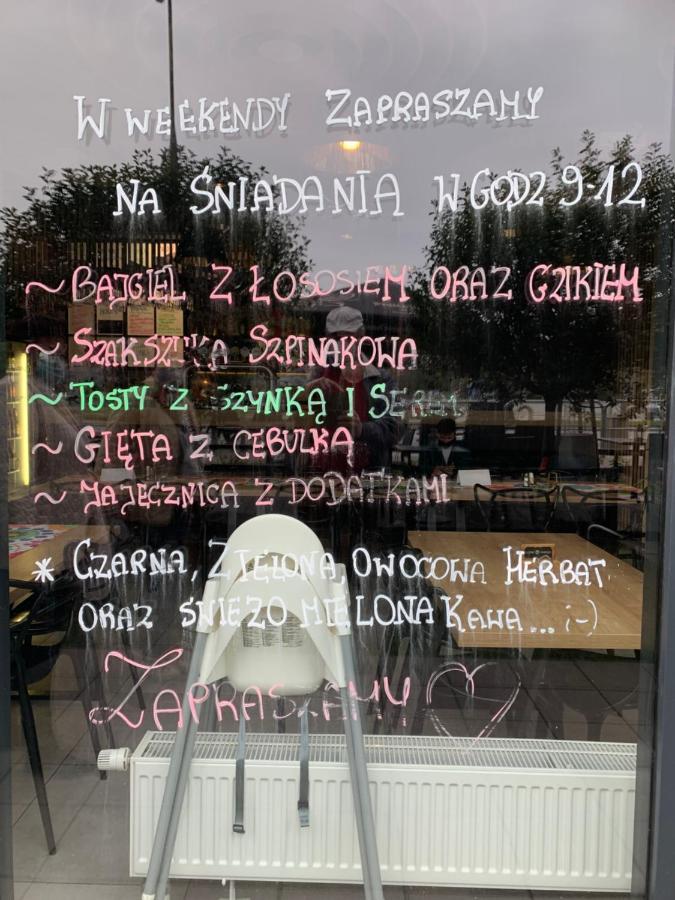 W WEEKENDY ZAPRASZAMY
NA ŚNIADANIA W GODZ 9-12
~ BAJGIEL Z ŁOSOSIEM ORAZ GZIKIEM
~ SZAKSZUKA SZPINAKOWA
~ TOSTY Z SZYNKĄ I SEREM
~ GIĘTA Z CEBULKĄ
~ JAJECZNICA Z DODATKAMI
* CZARNA, ZIELONA, OWOCOWA HERBAT
ORAZ ŚWIEŻO MIELONA KAWA... ;-)
ZAPRASZAMY ♡